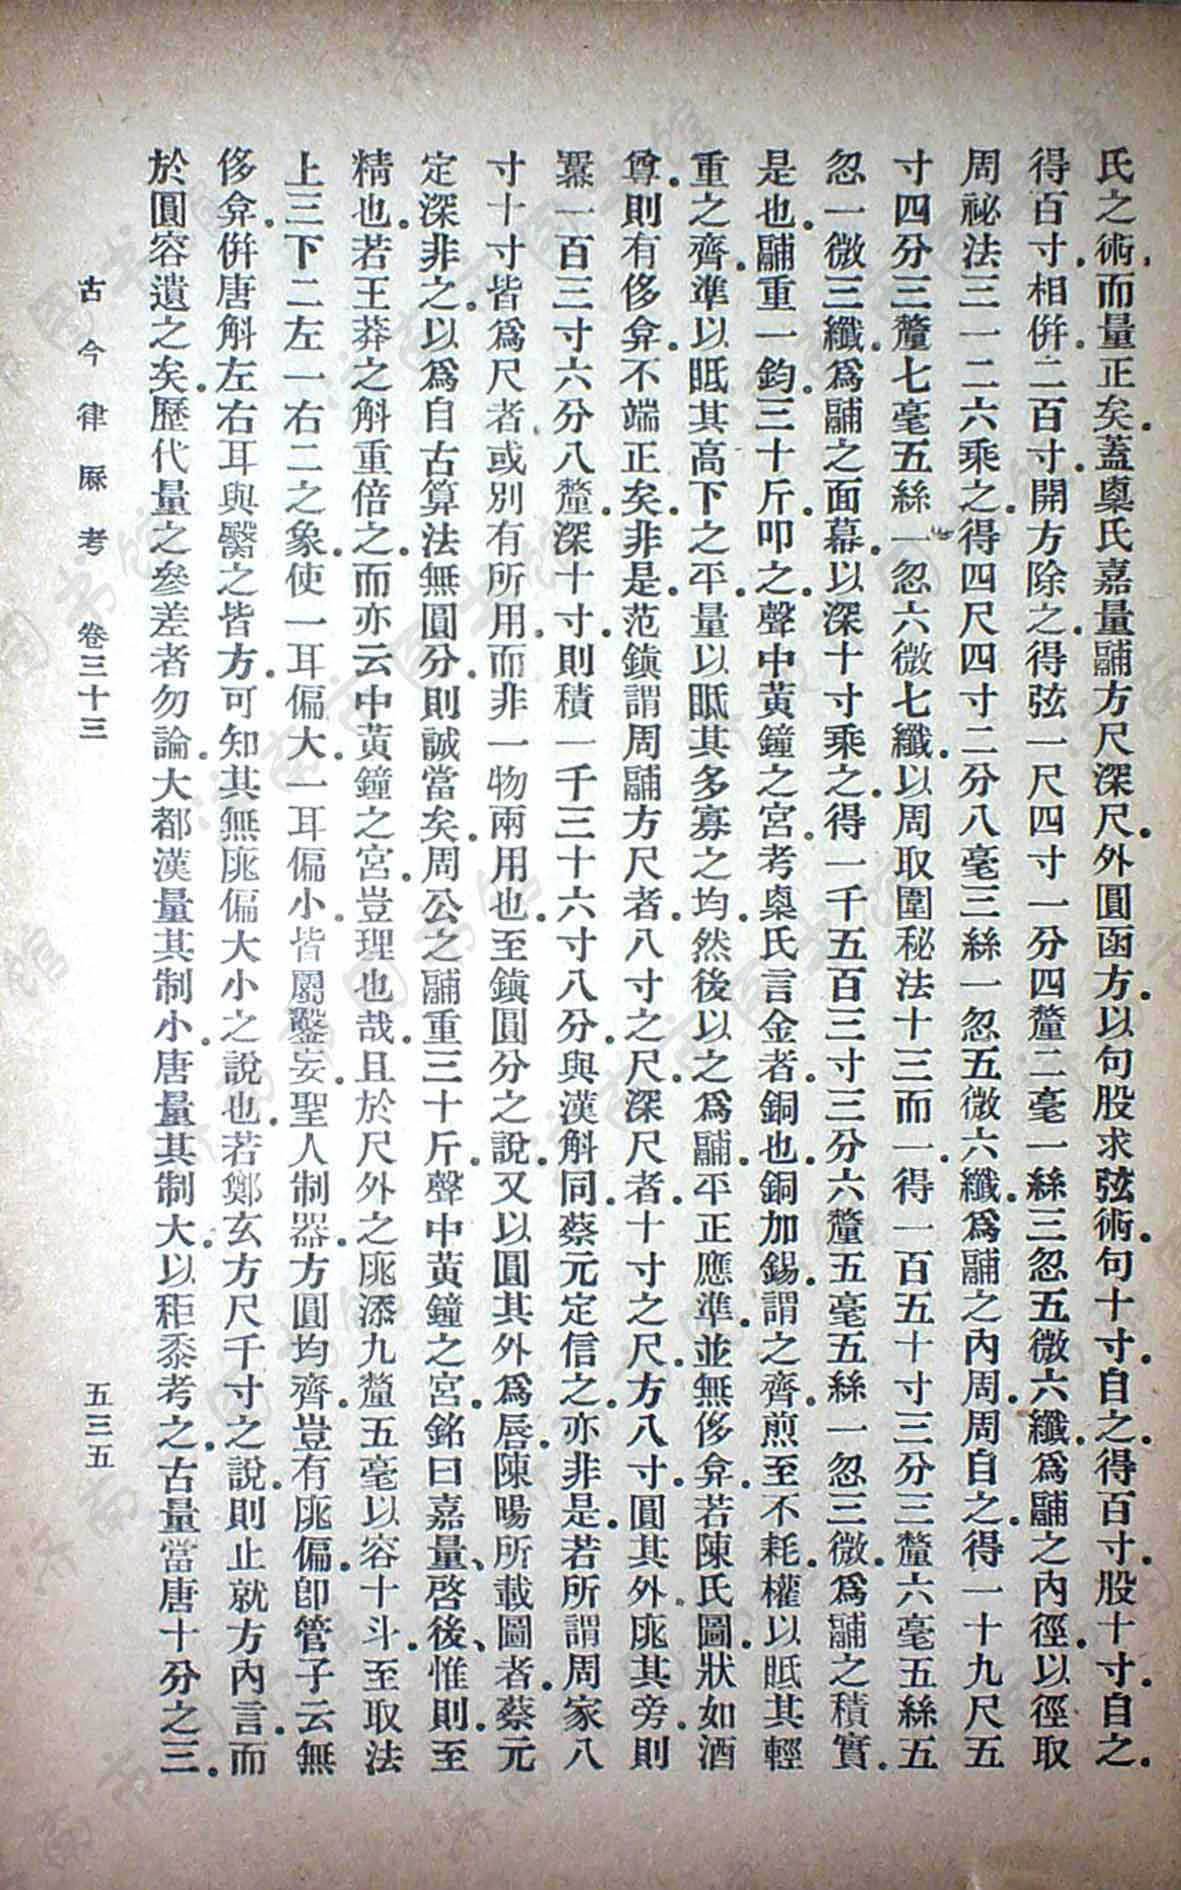 氏之術而量正矣蓋㮚氏嘉量鬴方尺深尺外圓函方以句股求弦術句十寸自之得百寸股十寸自之
得百寸相併二百寸開方除之得弦一尺四寸一分四釐二毫一絲三忽五微六纖爲鬴之內徑以徑取
周祕法三一二六乘之得四尺四寸二分八毫三絲一忽五微六纖爲鬴之內周周自之得一十九尺五
寸四分三釐七毫五絲一忽六微七纖以周取圍秘法十三而一得一百五十寸三分三釐六毫五絲五
忽一微三纖爲鬴之面幕以深十寸乘之得一千五百三寸三分六釐五毫五絲一忽三微爲鬴之積實
是也鬴重一鈞三十斤叩之聲中黃鐘之宮考㮚氏言金者銅也銅加錫謂之齊煎至不耗權以眡其輕
重之齊準以眡其高下之平量以眡其多寡之均然後以之爲鬴平正應準並無侈弇若陳氏圖狀如酒
尊則有侈弇不端正矣非是范鎮謂周鬴方尺者八寸之尺深尺者十寸之尺方八寸圓其外庣其旁則
羃一百三寸六分八釐深十寸則積一千三十六寸八分與漢斛同蔡元定信之亦非是若所謂周家八
寸十寸皆爲尺者或別有所用而非一物兩用也至鎮圓分之說又以圓其外爲唇陳暘所載圖者蔡元
定深非之以爲自古算法無圓分則誠當矣周公之鬴重三十斤聲中黃鐘之宮銘曰嘉量啓後惟則至
精也若王莽之斛重倍之而亦云中黃鐘之宮豈理也哉且於尺外之庣添九釐五毫以容十斗至取法
上三下二左一右二之象使一耳偏大一耳偏小皆屬鑿妄聖人制器方圓均齊豈有庣偏卽管子云無
侈弇併唐斛左右耳與臋之皆方可知其無庣偏大小之說也若鄭玄方尺千寸之說則止就方內言而
於圓容遺之矣歷代量之參差者勿論大都漢量其制小唐量其制大以秬黍考之古量當唐十分之三
古今律厤考 卷三十三 五三五